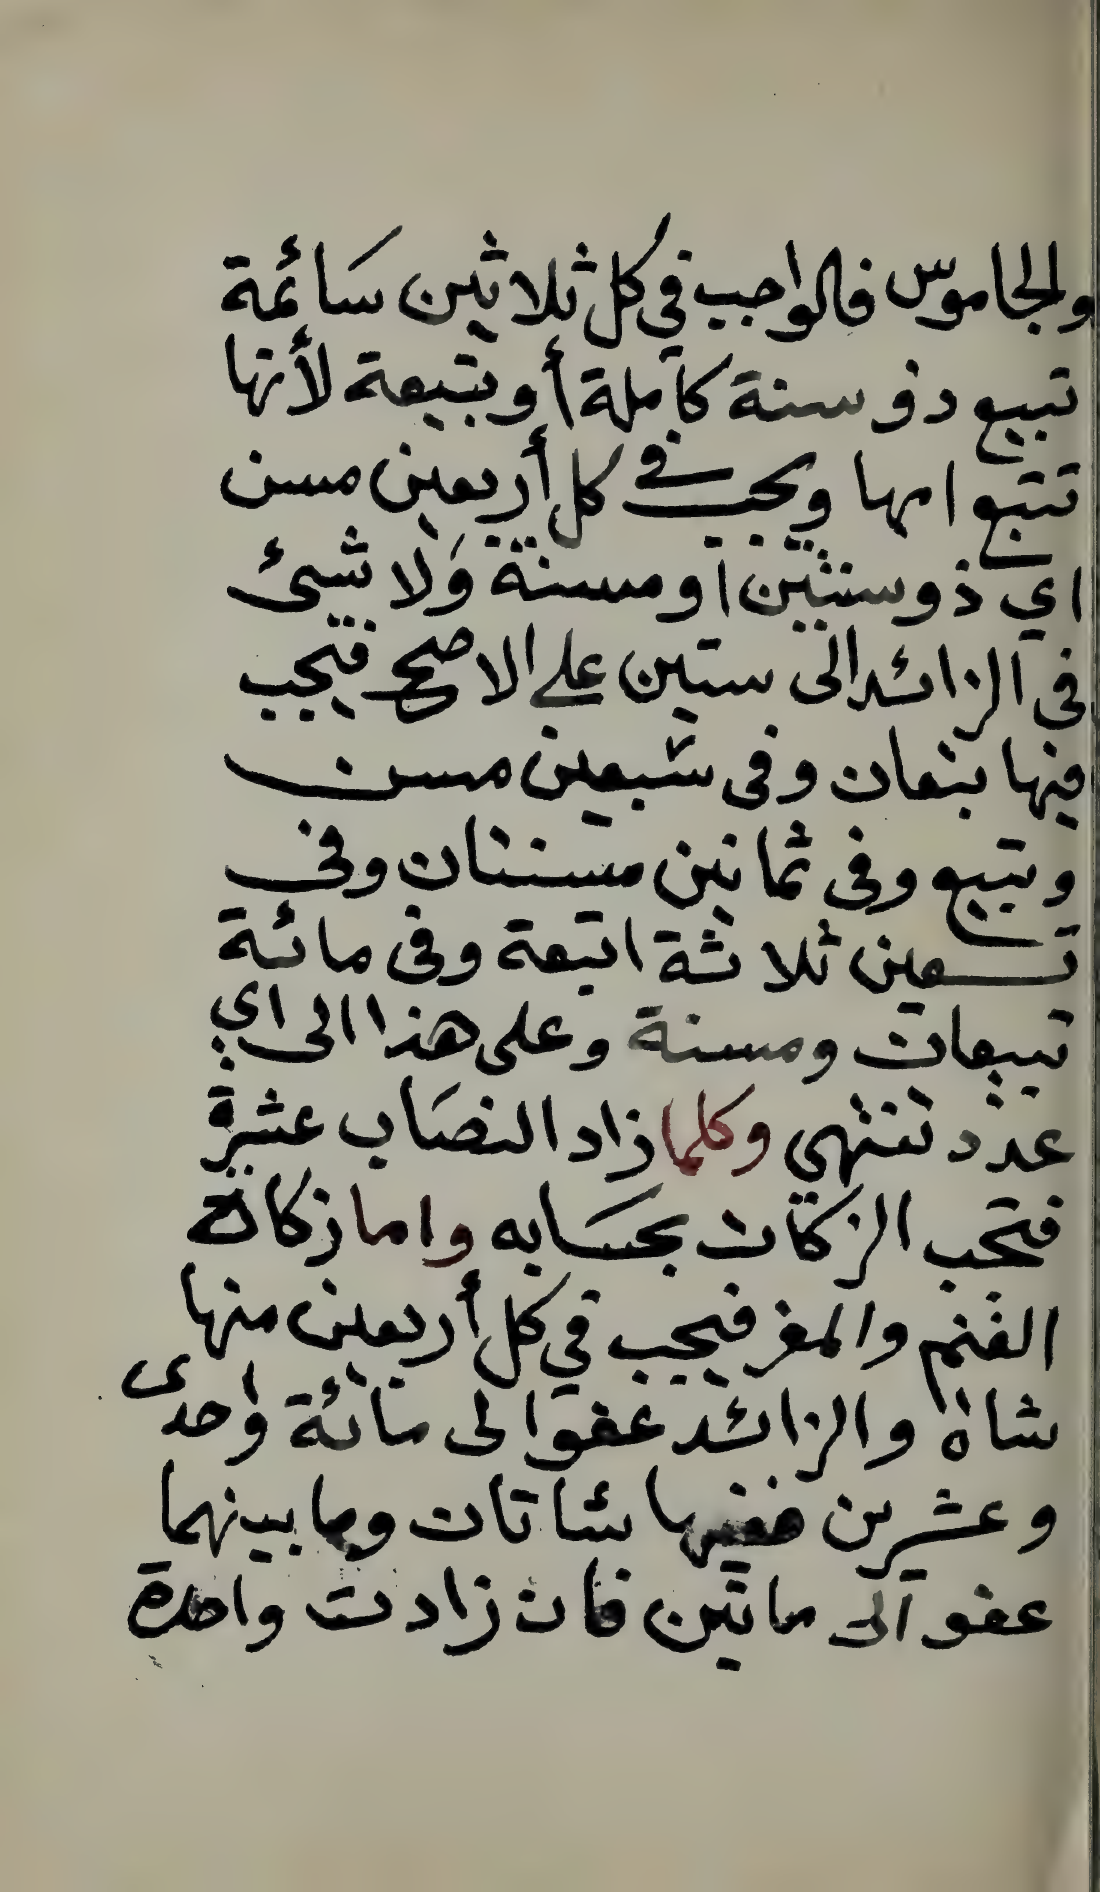 والجاموس فالواجب في كل ثلاثين سَائمة
تبيع ذو سنة كاملة أو تبيعة لأنها
تتبع امها ويجب في كل أربعين مسن
اي ذو سنتين او مسنة وَلا شيئ
في الزائد الى ستين على الاصح فيجب
فيها تبعان وفى سبعين مسن
وتبيع وفى ثمانين مسنتان وفى
تسعين ثلاثة اتبعة وفى مائة
تبيعات ومسنة وعلى هذا الى اي
عدد تنتهي وكلما زاد النصَاب عشرة
فتجب الزكات بحسَابه واما زكاة
الغنم والمغز فيجب في كل أربعين منها
شاة والزائد عفو الى مائة واحدى
وعشرين ففيها شاتان وما بينهما
عفو الى ماتين فان زادت واحدة